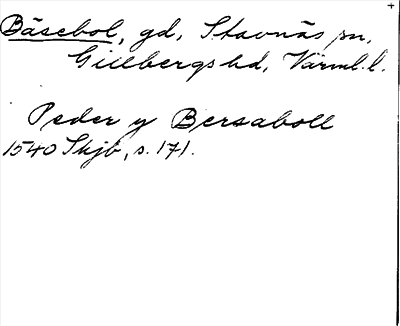 Bäsebol, gd, Stavnäs sn,
Gillbergs hd, Värml. l.
Peder y Bersaboll
1540 Skjb, s. 171.